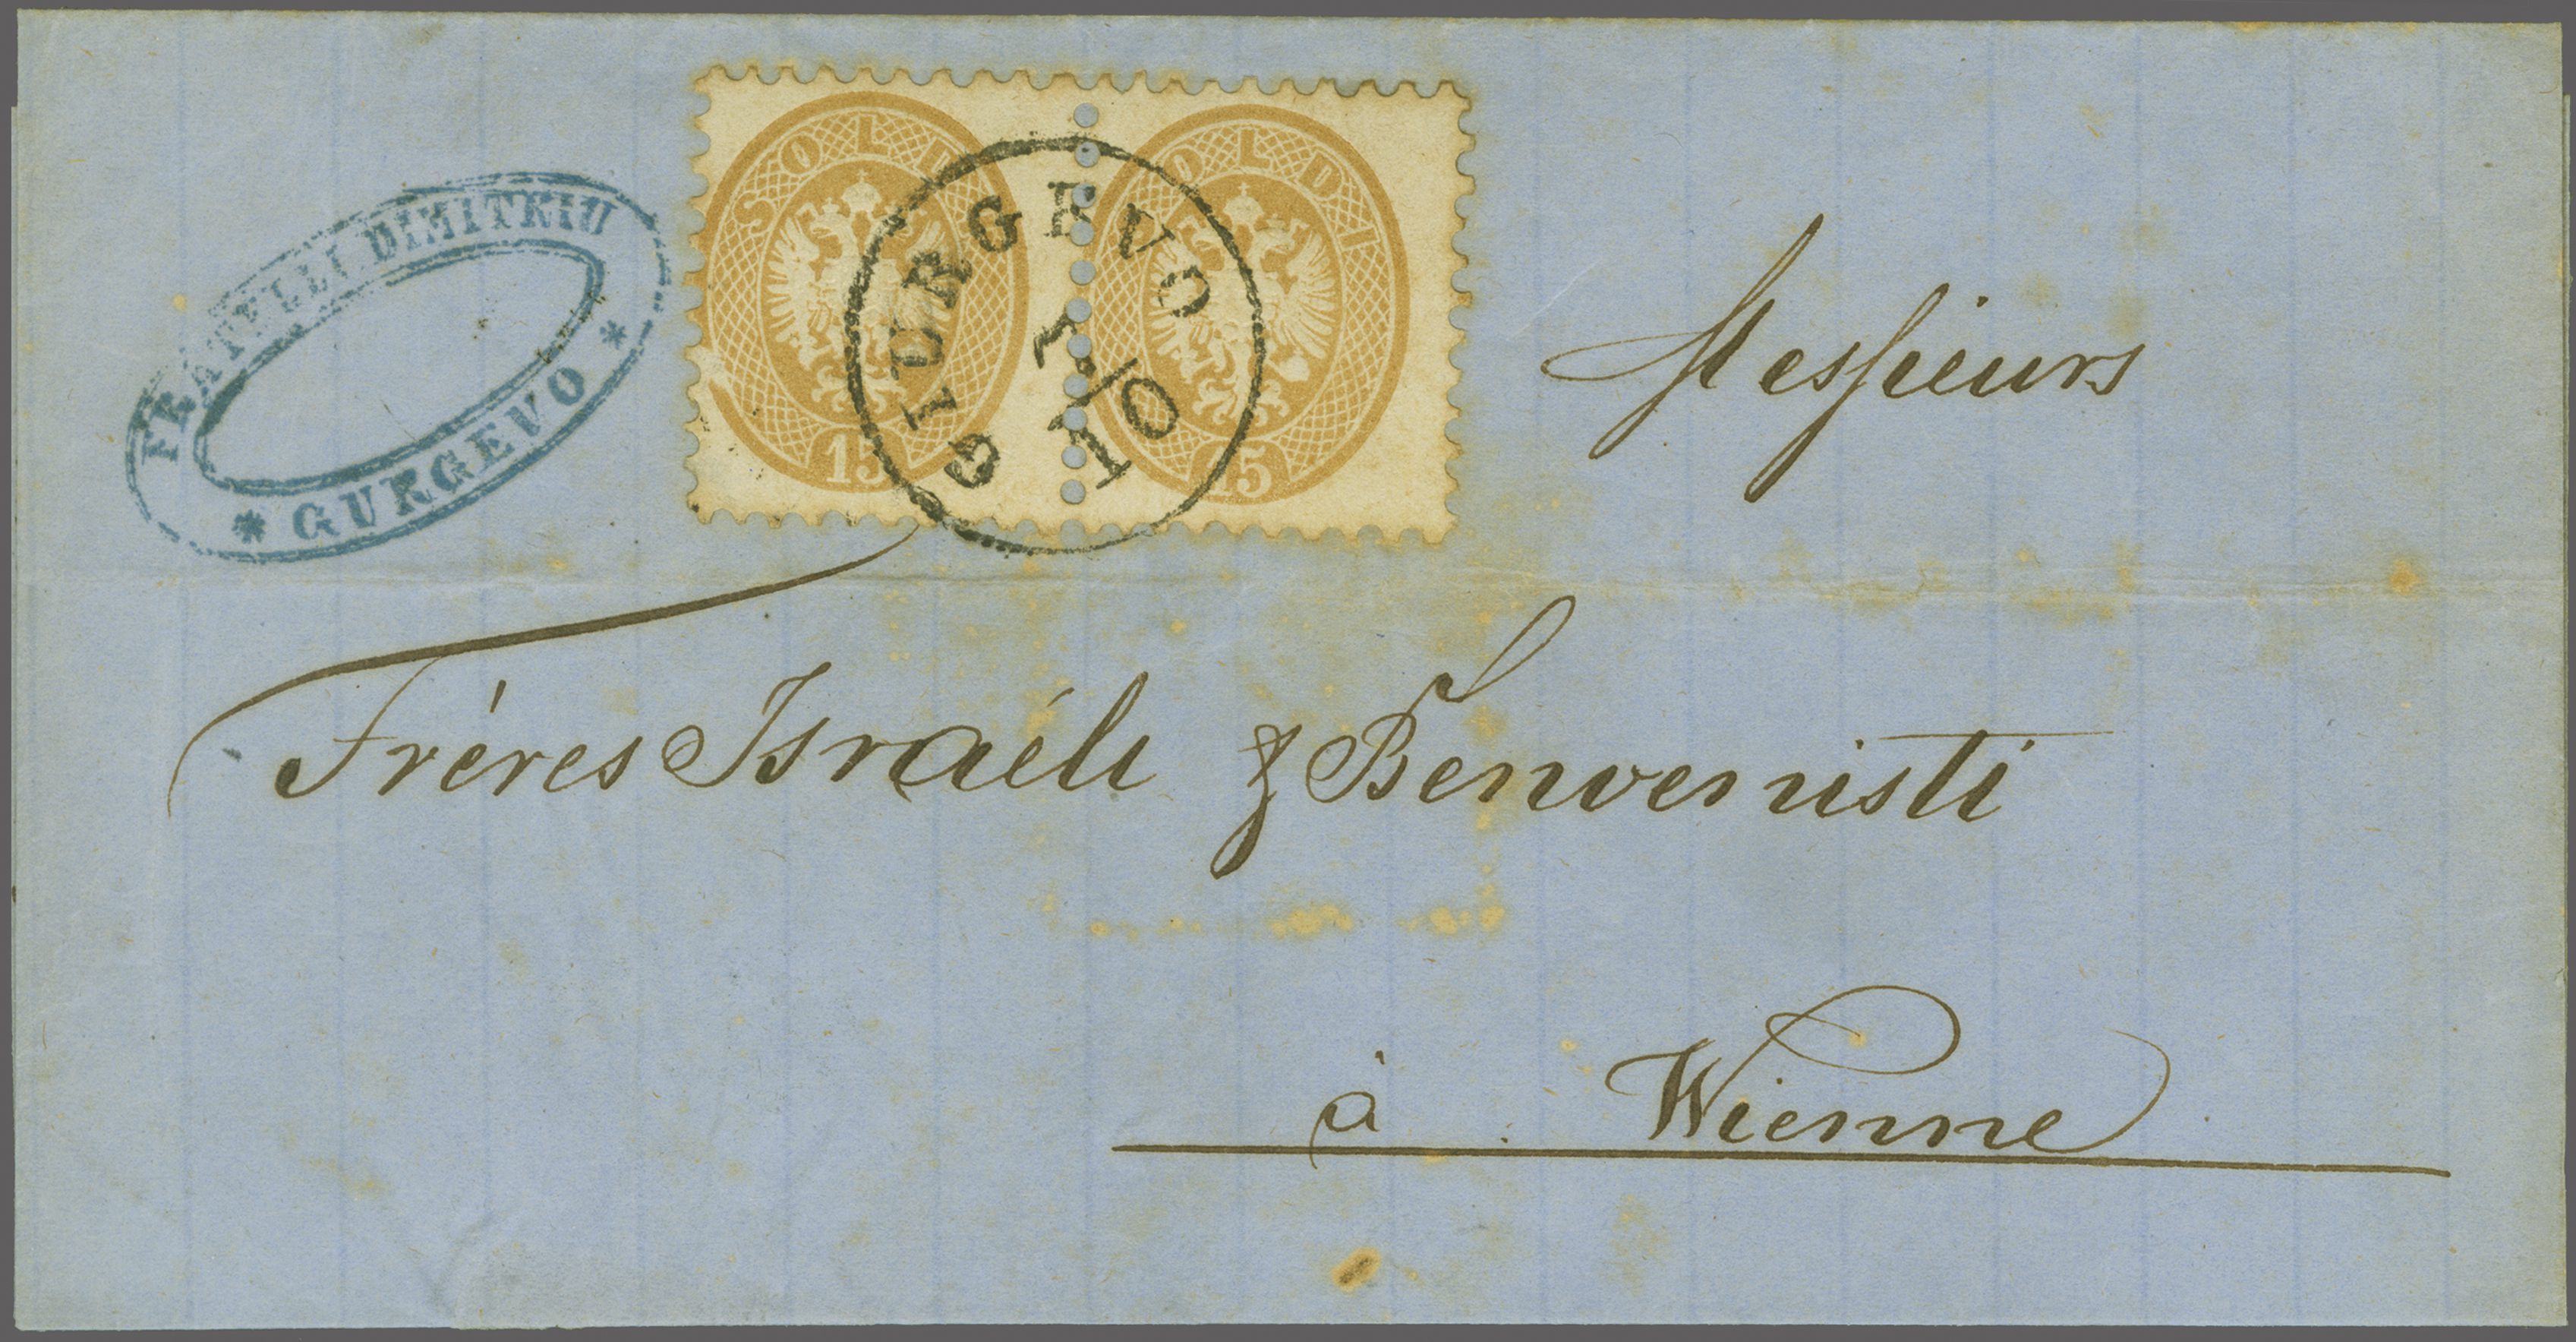 FRATELLI DIMITRIU
* GURGEVO *
SOLDI
15
SOLDI
15
GIURGEVO
7/10
Messieurs
Frères Israéli & Benvenisti
à Wienne